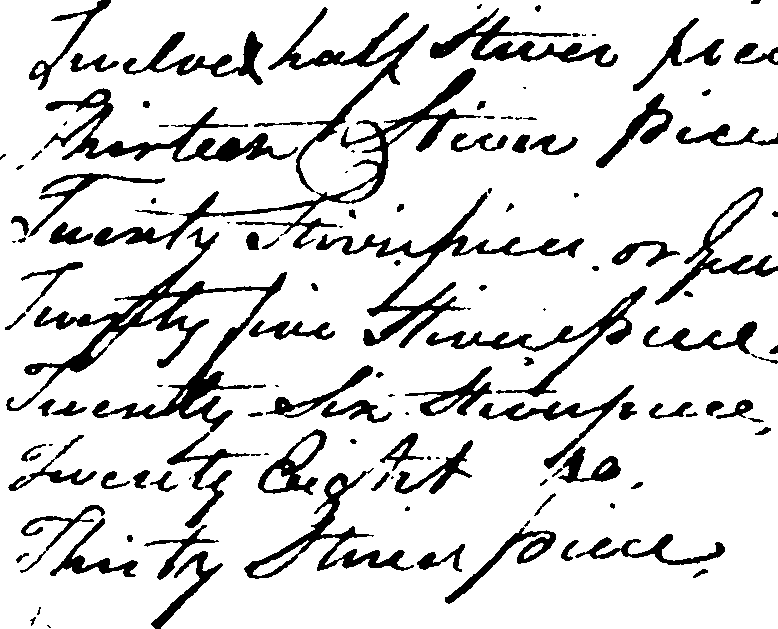 Twelve & half Stiver piec
Thirteen Stiver piece
Twenty Stiver piece or Gui
Twenty five Stiver piece
Twenty Six Stiver piece,
Twenty Eight Do.
Thirty Stiver piece,